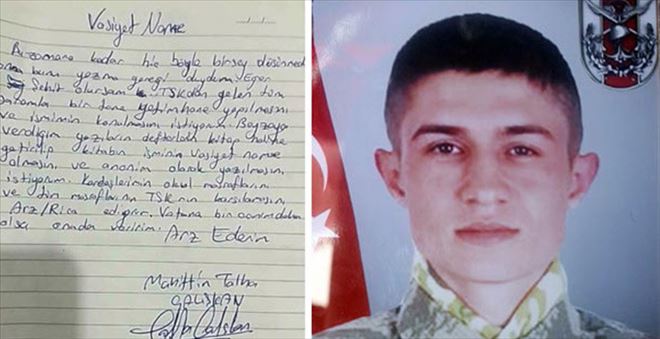 Vasiyet Name
Bu zamana kadar hiç böyle bir şey düşünmedim
ama bunu yazma gereği duydum. Eğer
Şehit olursam TSK'dan gelen tüm
paramla bir tane yetimhane yapılmasını
ve ismimin konulmasını istiyorum. Beyzaya
verdiğim yazıların defterlerin kitap haline
getirilip kitabın isminin Vasiyet name
olmasını ve anonim olarak yazılmasını
istiyorum. Kardeşlerimin okul masraflarını
ve tüm masraflarını TSK'nın karşılamasını
Arz/Rica ediyorum. Vatana bin canım daha
olsa onuda veririm. Arz Ederim
Muhittin Talha
ÇALIŞKAN